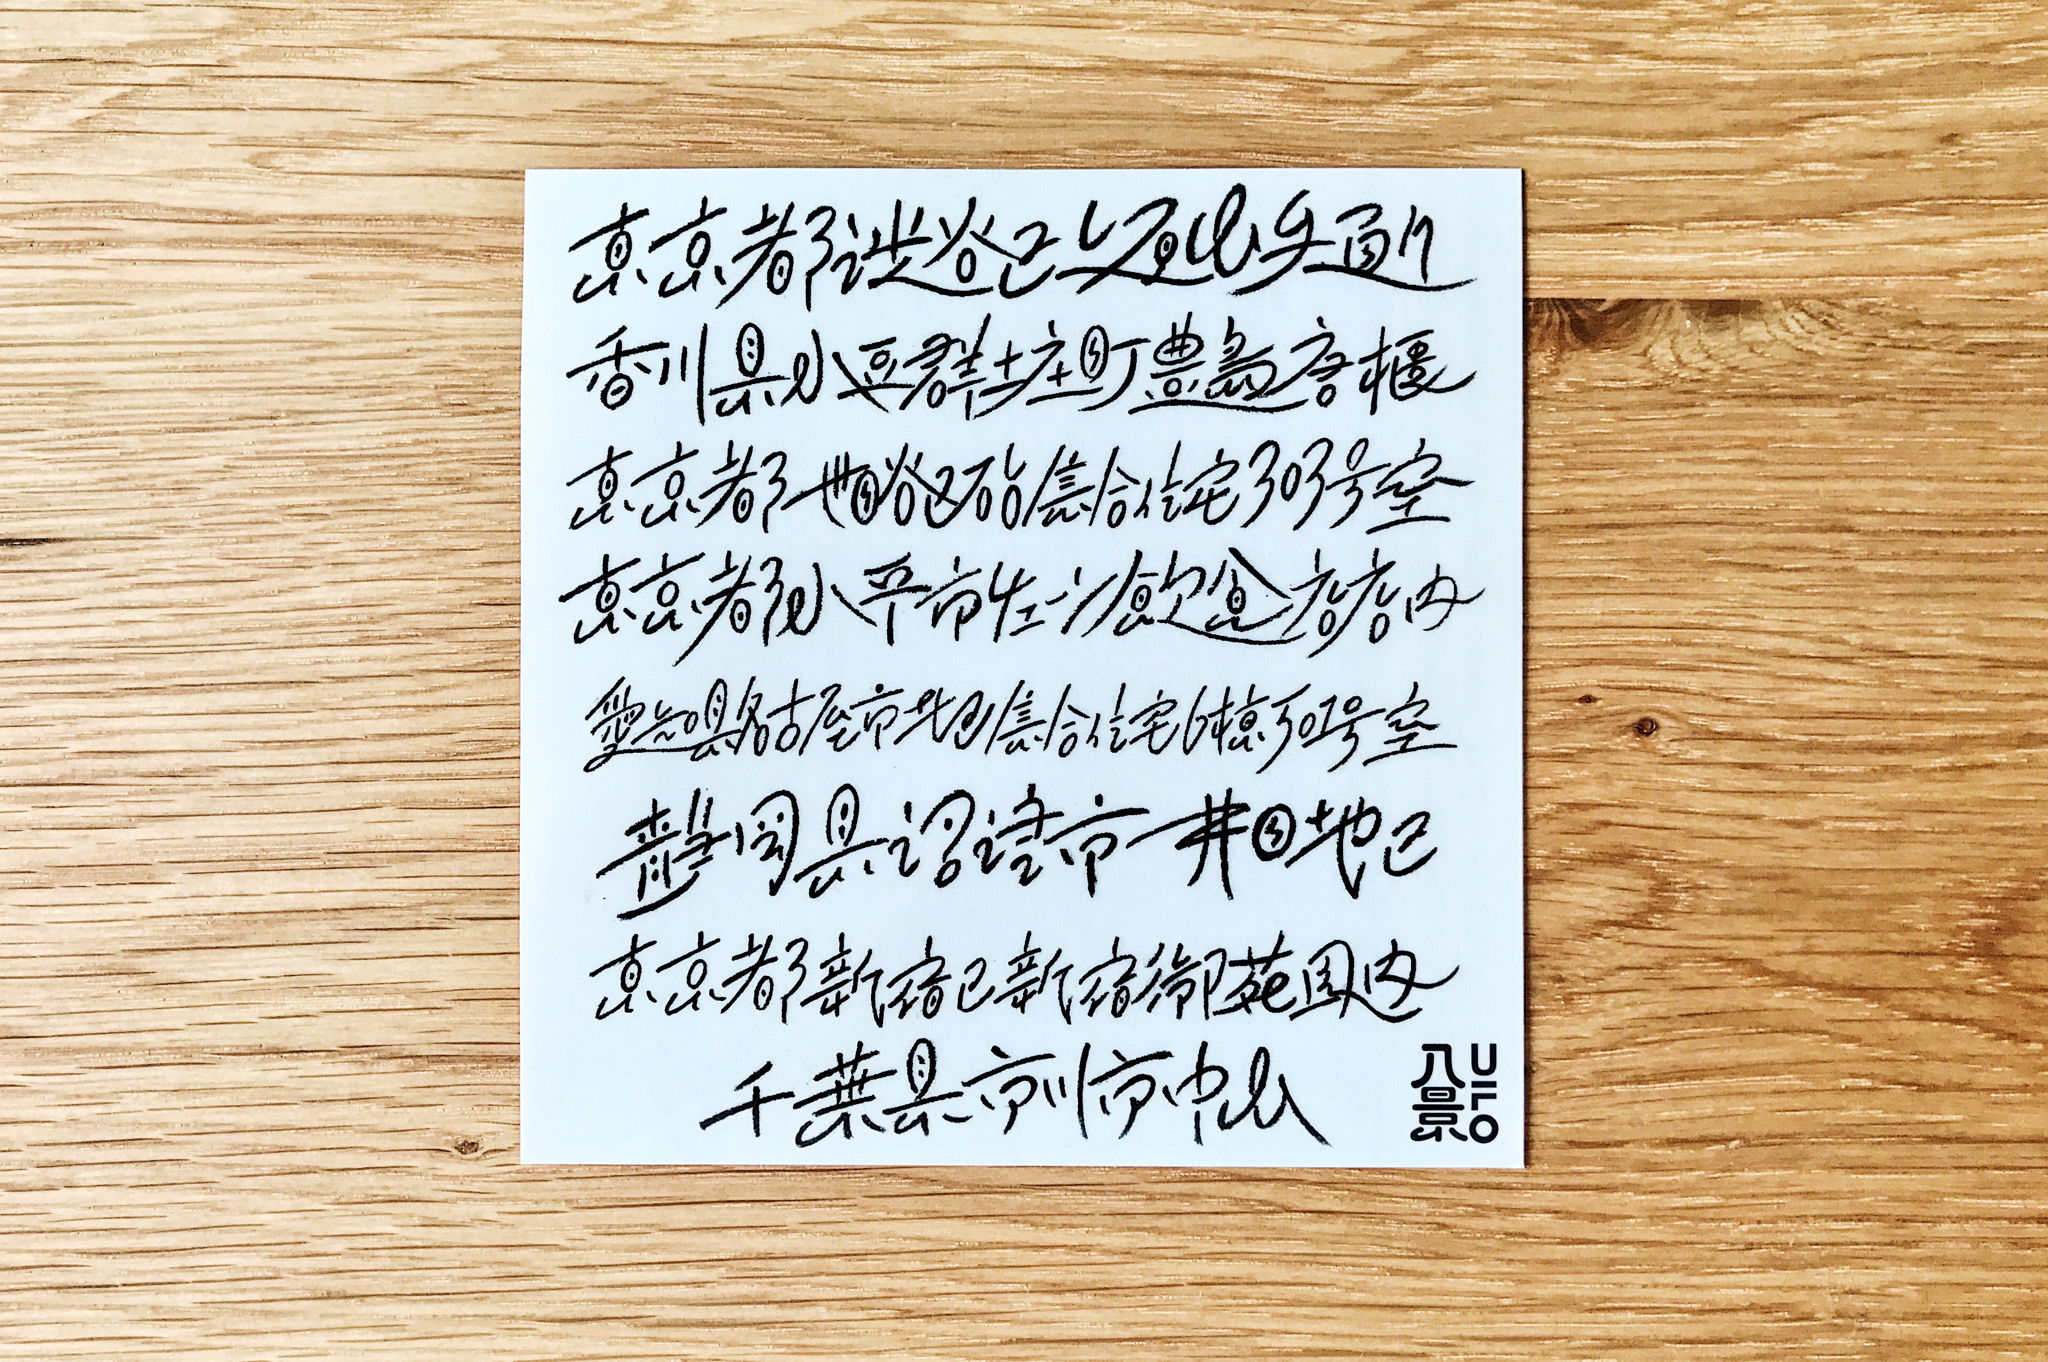 東京都渋谷区上原山手通り
香川県小豆群土庄町豊島唐櫃
東京都世田谷区砧集合住宅303号室
東京都小平市 飲食店店内
愛知県名古屋市北区集合住宅6棟 号室
静岡県沼津市井田地区
東京都新宿区新宿御苑園内
千葉県市川市中山
八景
UFO